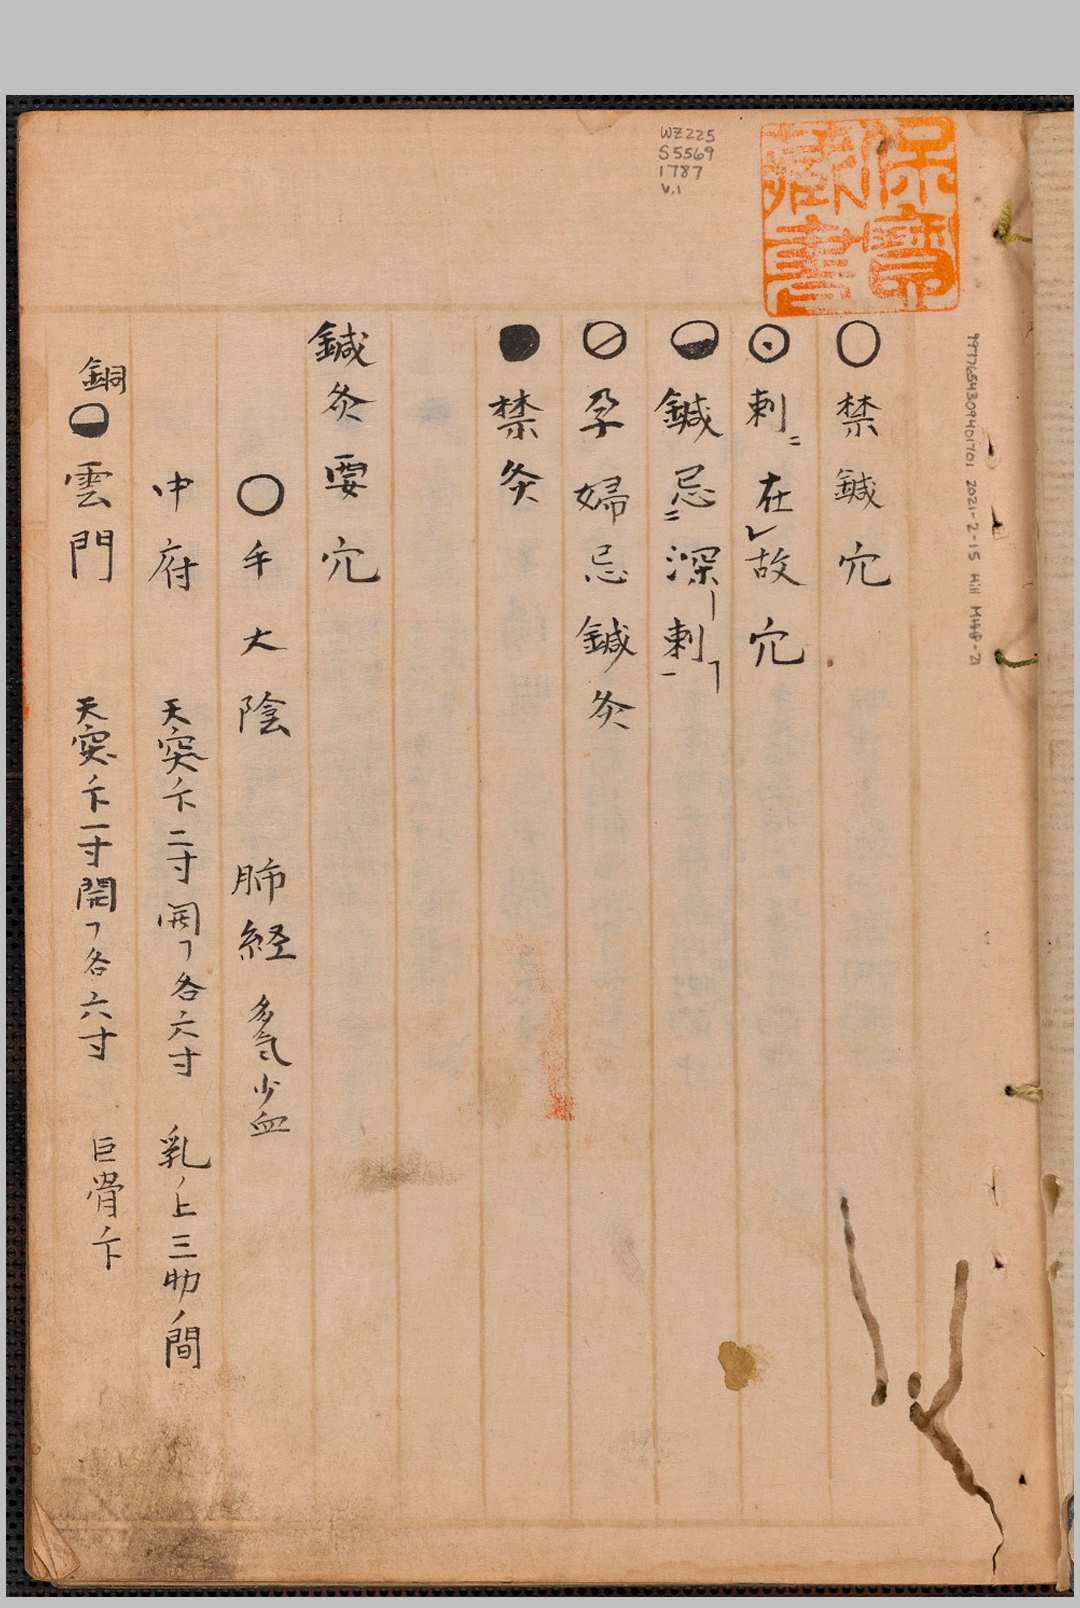 WZ225
S5569
1787
v.1
保寶
藏書
○禁鍼穴
⊙刺ニ在レ故穴
鍼忌ニ深ク刺一ヿ
⊘孕婦忌鍼灸
●禁灸
鍼灸要穴
○手太陰 肺経 多気少血
中府 天突ノ下二寸開ヿ各六寸 乳ノ上三肋ノ間
銅 雲門 天突ノ下一寸開ヿ各六寸 巨骨ノ下
2021-2-15 Hill